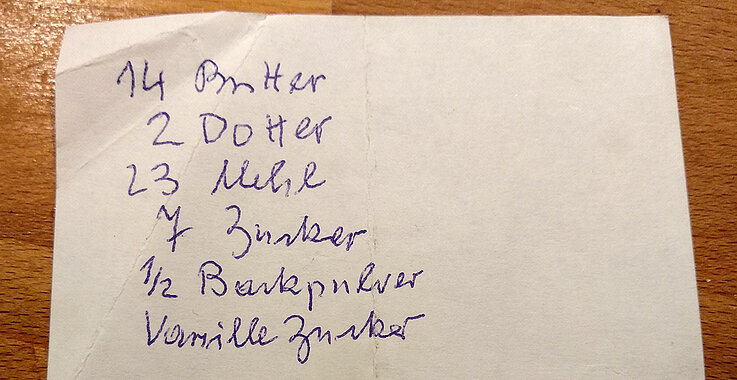 14 Butter
2 Dotter
23 Mehl
7 Zucker
1/2 Backpulver
Vanillezucker